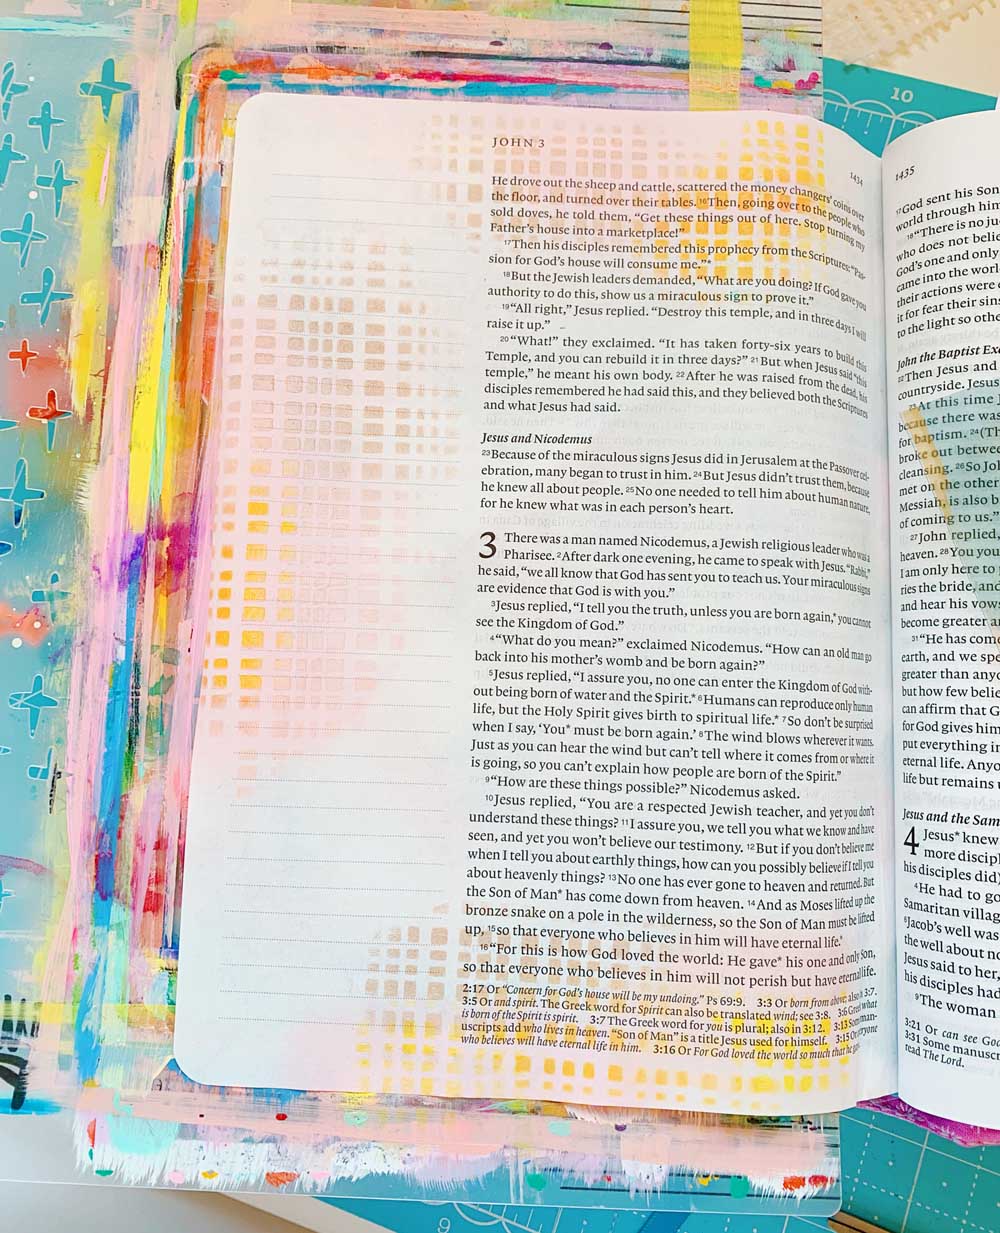 10
JOHN 3
1434
He drove out the sheep and cattle, scattered the money changers’ coins over
the floor, and turned over their tables. 16Then, going over to the people who
sold doves, he told them, “Get these things out of here. Stop turning my
Father’s house into a marketplace!”
17Then his disciples remembered this prophecy from the Scriptures: “Pas-
sion for God’s house will consume me.”*
18But the Jewish leaders demanded, “What are you doing? If God gave you
authority to do this, show us a miraculous sign to prove it.”
19“All right,” Jesus replied. “Destroy this temple, and in three days I will
raise it up.”
20“What!” they exclaimed. “It has taken forty-six years to build this
Temple, and you can rebuild it in three days?” 21But when Jesus said “this
temple,” he meant his own body. 22After he was raised from the dead, his
disciples remembered he had said this, and they believed both the Scriptures
and what Jesus had said.
Jesus and Nicodemus
23Because of the miraculous signs Jesus did in Jerusalem at the Passover cel-
ebration, many began to trust in him. 24But Jesus didn’t trust them, because
he knew all about people. 25No one needed to tell him about human nature,
for he knew what was in each person’s heart.
3 There was a man named Nicodemus, a Jewish religious leader who was a
Pharisee. 2After dark one evening, he came to speak with Jesus. “Rabbi,”
he said, “we all know that God has sent you to teach us. Your miraculous signs
are evidence that God is with you.”
3Jesus replied, “I tell you the truth, unless you are born again,* you cannot
see the Kingdom of God.”
4“What do you mean?” exclaimed Nicodemus. “How can an old man go
back into his mother’s womb and be born again?”
5Jesus replied, “I assure you, no one can enter the Kingdom of God with-
out being born of water and the Spirit.* 6Humans can reproduce only human
life, but the Holy Spirit gives birth to spiritual life.* 7So don’t be surprised
when I say, ‘You* must be born again.’ 8The wind blows wherever it wants.
Just as you can hear the wind but can’t tell where it comes from or where it
is going, so you can’t explain how people are born of the Spirit.”
9“How are these things possible?” Nicodemus asked.
10Jesus replied, “You are a respected Jewish teacher, and yet you don’t
understand these things? 11I assure you, we tell you what we know and have
seen, and yet you won’t believe our testimony. 12But if you don’t believe me
when I tell you about earthly things, how can you possibly believe if I tell you
about heavenly things? 13No one has ever gone to heaven and returned. But
the Son of Man* has come down from heaven. 14And as Moses lifted up the
bronze snake on a pole in the wilderness, so the Son of Man must be lifted
up, 15so that everyone who believes in him will have eternal life.*
16“For this is how God loved the world: He gave* his one and only Son,
so that everyone who believes in him will not perish but have eternal life.
2:17 Or “Concern for God’s house will be my undoing.” Ps 69:9. 3:3 Or born from above; also in 3:7.
3:5 Or and spirit. The Greek word for Spirit can also be translated wind; see 3:8. 3:6 Greek what
is born of the Spirit is spirit. 3:7 The Greek word for you is plural; also in 3:12. 3:13 Some man-
uscripts add who lives in heaven. “Son of Man” is a title Jesus used for himself. 3:15 Or everyone
who believes will have eternal life in him. 3:16 Or For God loved the world so much that he
1435
17God sent his Son
world through him
18“There is no jud
who does not belie
God’s one and only
came into the world
their actions were
it for fear their sins
to the light so othe
John the Baptist Exa
22Then Jesus and
countryside. Jesus
23At this time J
because there was
for baptism. 24(Th
broke out between
cleansing. 26So Joh
met on the other
Messiah, is also b
of coming to us.”
27John replied,
heaven. 28You you
I am only here to
ries the bride, and
and hear his vows
become greater an
31“He has come
earth, and we spe
greater than anyo
but how few belie
can affirm that G
for God gives him
put everything in
eternal life. Anyo
life but remains u
Jesus and the Sam
4 Jesus* knew
more discipl
his disciples did)
4He had to go
Samaritan villag
Jacob’s well was
the well about no
Jesus said to her,
his disciples had
9The woman
3:21 Or can see God
3:31 Some manuscr
read The Lord.
9